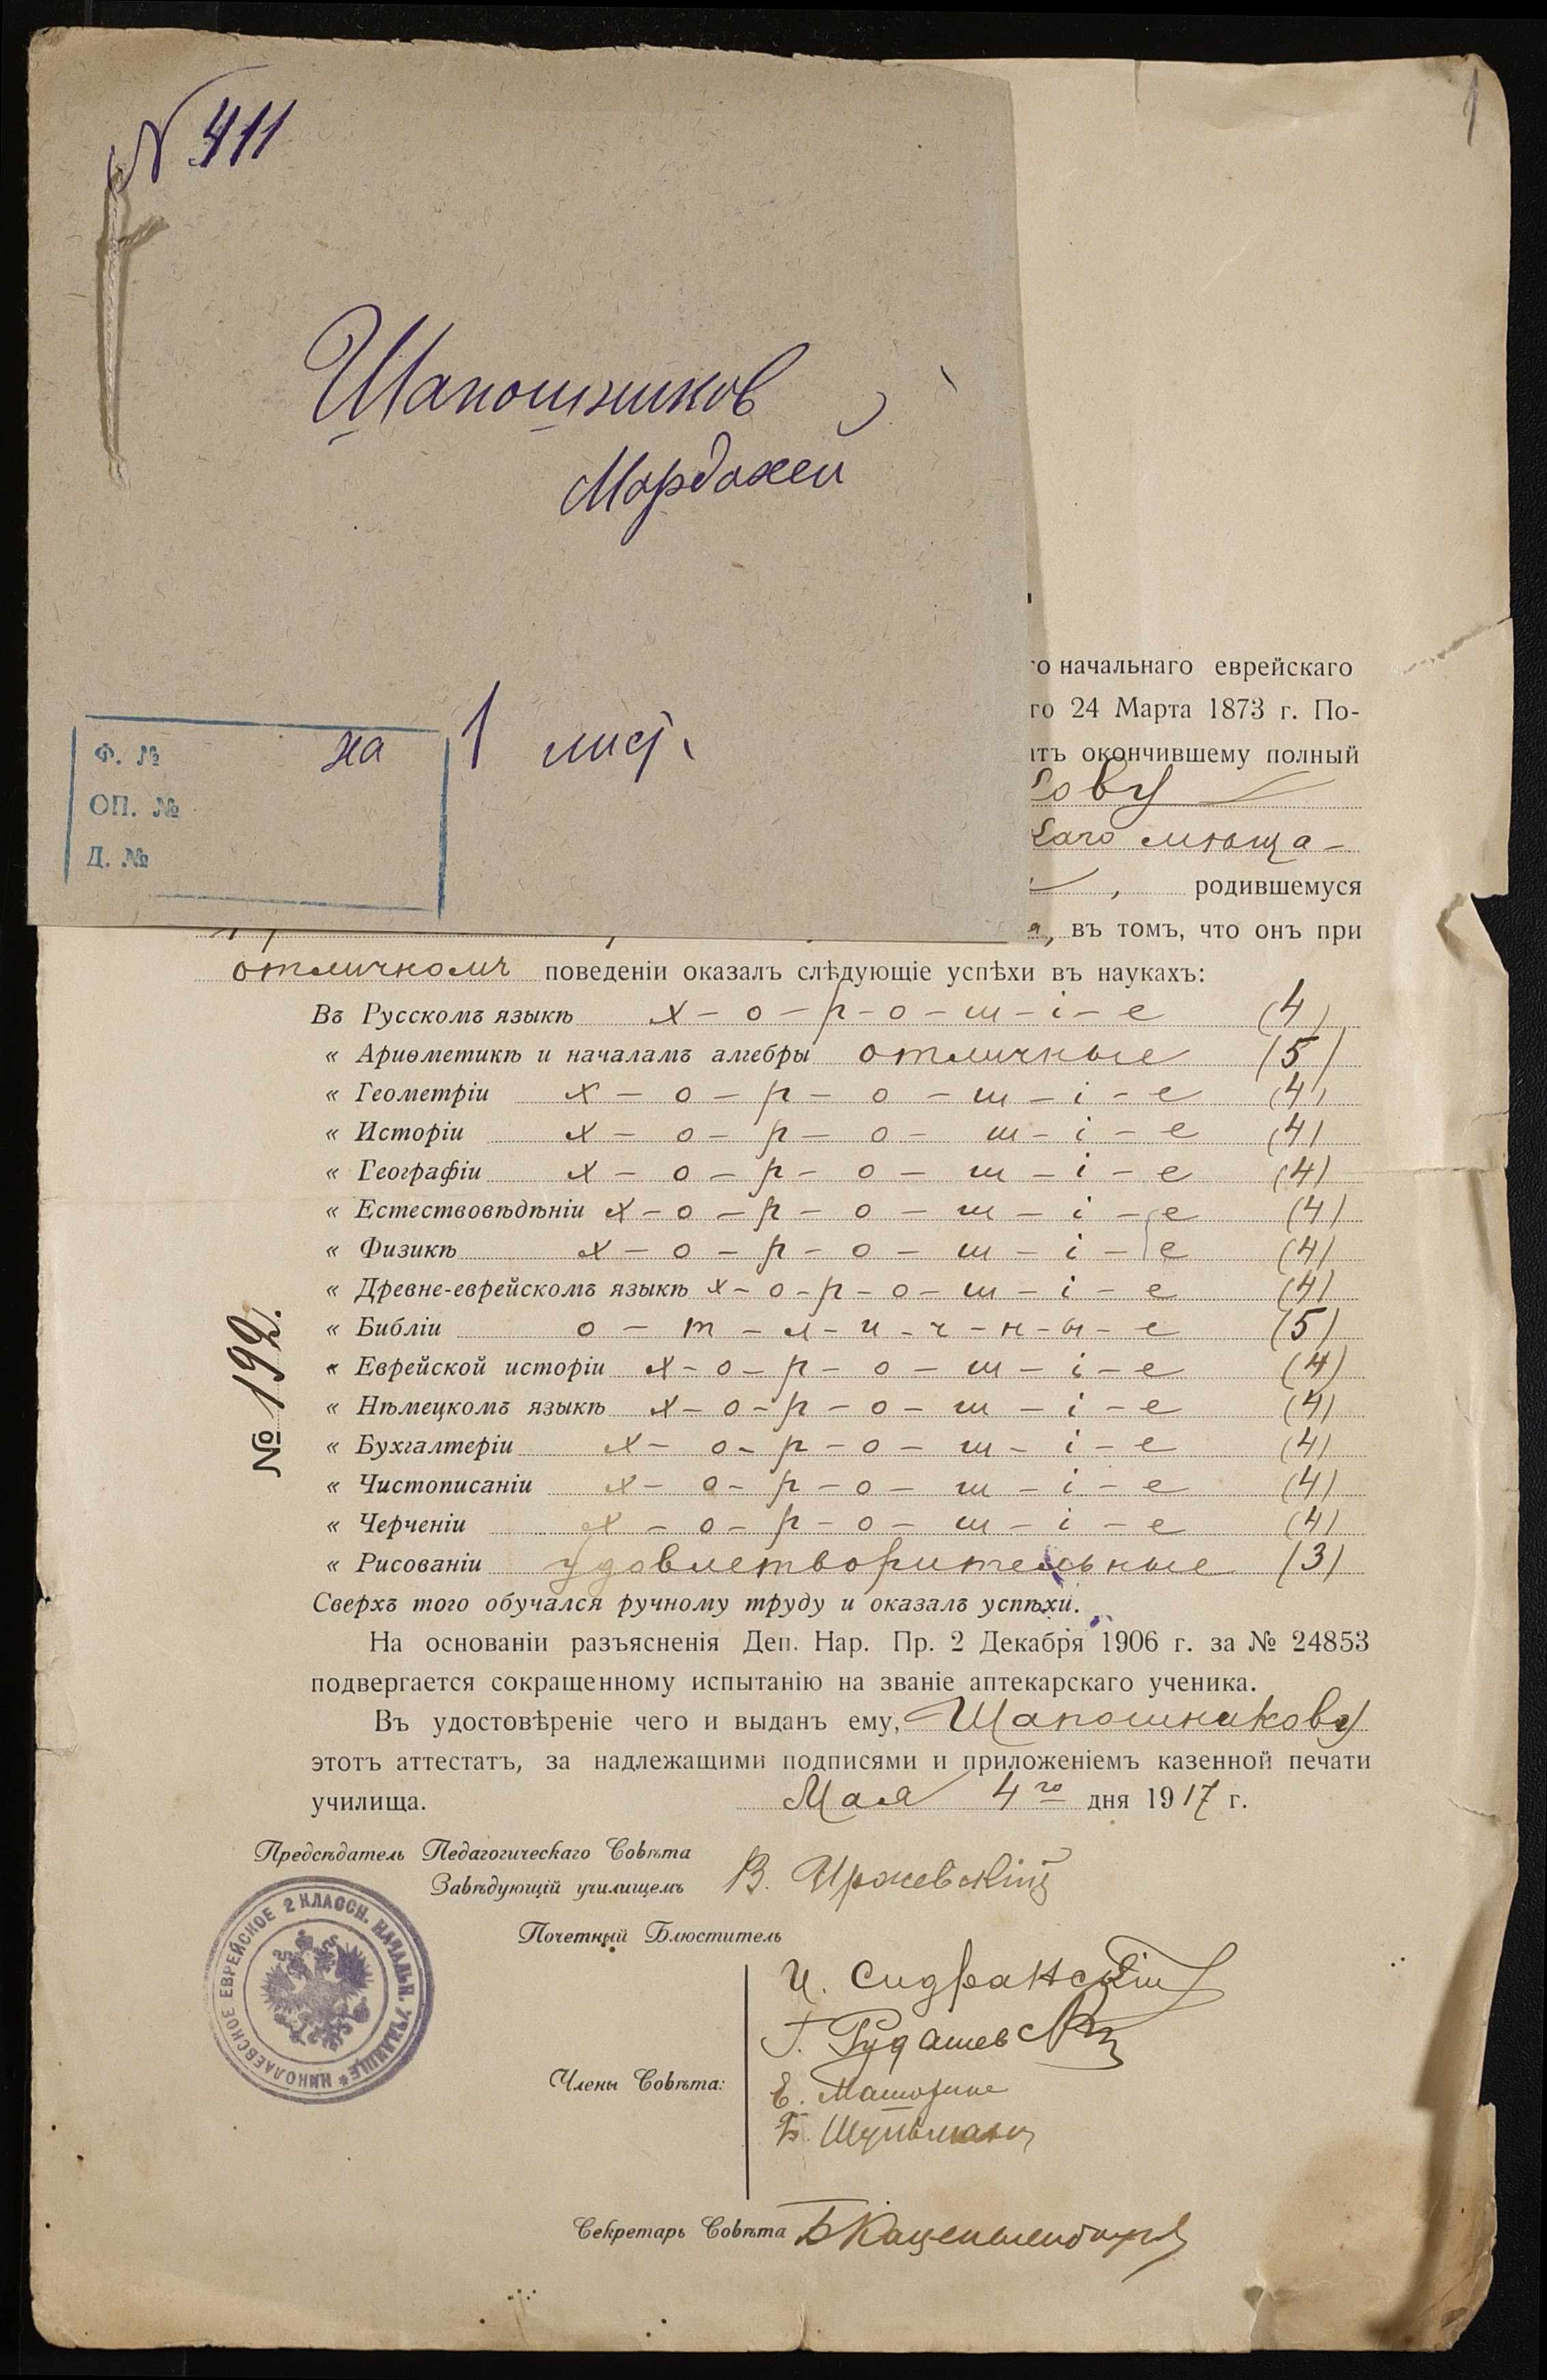 N 411
1
Шапошников
Мордахей
на 1 лист.
Ф. №
ОП. №
Д. №
начальнаго еврейскаго
24 Марта 1873 г. По-
окончившему полный
мѣща-
, родившемуся
, въ томъ, что онъ при
отличномъ поведеніи оказалъ слѣдующіе успѣхи въ наукахъ:
Въ Русскомъ языкѣ х-о-р-о-ш-і-е (4)
« Ариѳметикѣ и началамъ алгебры отличные (5)
« Геометріи х-о-р-о-ш-і-е (4)
« Исторіи х-о-р-о-ш-і-е (4)
« Географіи х-о-р-о-ш-і-е (4)
« Естествовѣдѣніи х-о-р-о-ш-і-е (4)
« Физикѣ х-о-р-о-ш-і-е (4)
« Древне-еврейскомъ языкѣ х-о-р-о-ш-і-е (4)
« Библіи о-т-л-и-ч-н-ы-е (5)
« Еврейской исторіи х-о-р-о-ш-і-е (4)
« Нѣмецкомъ языкѣ х-о-р-о-ш-і-е (4)
« Бухгалтеріи х-о-р-о-ш-і-е (4)
« Чистописаніи х-о-р-о-ш-і-е (4)
« Черченіи х-о-р-о-ш-і-е (4)
« Рисованіи удовлетворительные (3)
Сверхъ того обучался ручному труду и оказалъ успѣхи.
На основаніи разъясненія Деп. Нар. Пр. 2 Декабря 1906 г. за № 24853
подвергается сокращенному испытанію на званіе аптекарскаго ученика.
Въ удостовѣреніе чего и выданъ ему, Шапошникову
этотъ аттестатъ, за надлежащими подписями и приложеніемъ казенной печати
училища. Мая 4го дня 1917 г.
№ 192.
Предсѣдатель Педагогическаго Совѣта
Завѣдующій училищемъ В.
Почетный Блюститель
И. Сидранскій
Г. Рудашевскій
Члены Совѣта:
Е.
Б. Шульманъ
Секретарь Совѣта
НИКОЛАЕВСКОЕ ЕВРЕЙСКОЕ 2 КЛАССН. НАЧАЛЬН. УЧИЛИЩЕ *